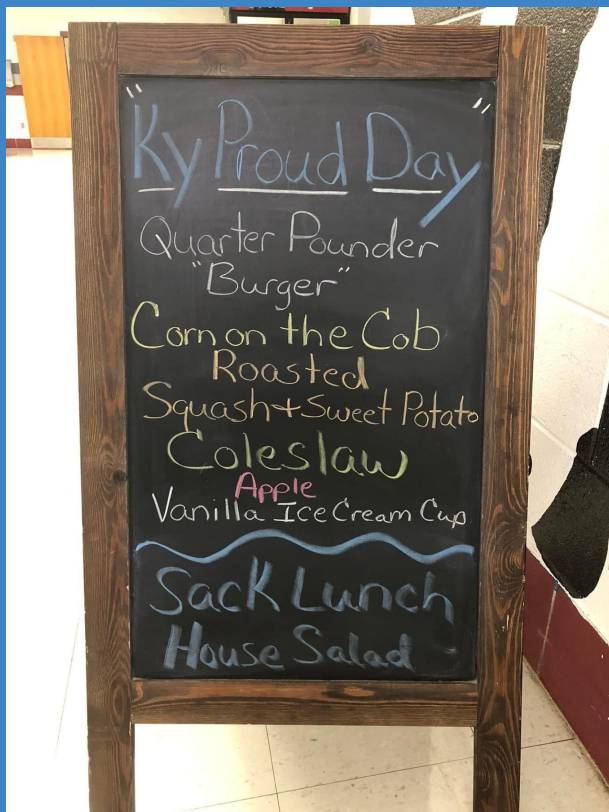 "Ky Proud Day"
Quarter Pounder
"Burger"
Corn on the Cob
Roasted
Squash + Sweet Potato
Coleslaw
Apple
Vanilla Ice Cream Cup
Sack Lunch
House Salad